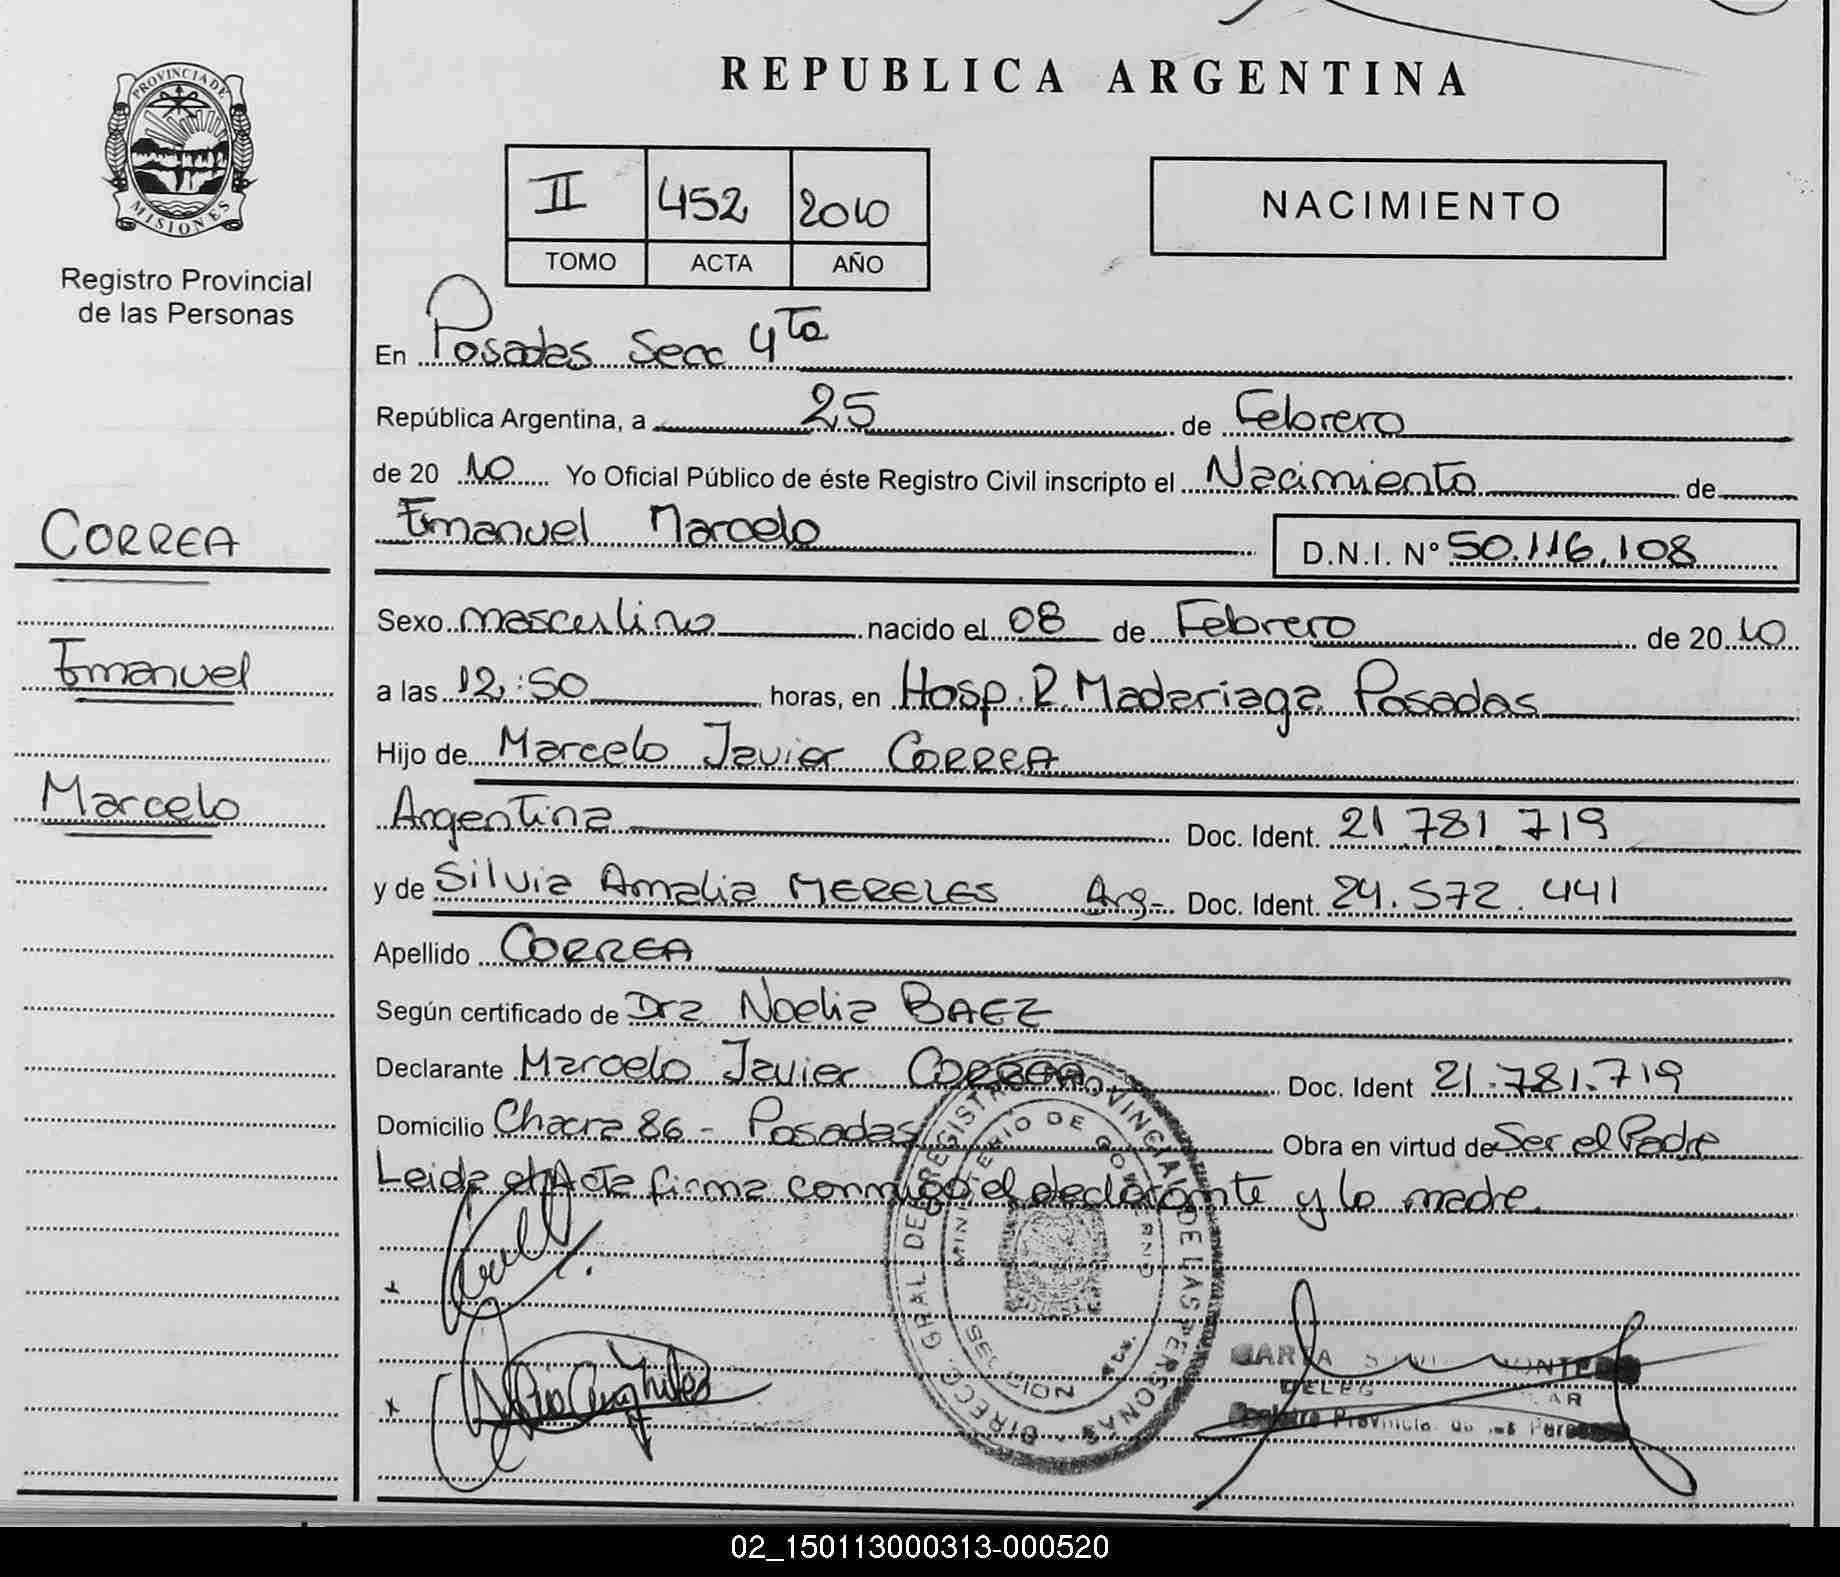 REPUBLICA ARGENTINA
PROVINCIA DE MISIONES
Registro Provincial
de las Personas
II 452 2010
TOMO ACTA AÑO
NACIMIENTO
En Posadas Secc 4ta
República Argentina, a 25 de Febrero
de 2010 Yo Oficial Público de éste Registro Civil inscripto el Nacimiento de
Emanuel Marcelo D.N.I. Nº 50.116.108
CORREA
Emanuel
Marcelo
Sexo masculino nacido el 08 de Febrero de 2010
a las 12:50 horas, en Hosp. R. Madariaga Posadas
Hijo de Marcelo Javier CORREA
Argentina Doc. Ident. 21.781.719
y de Silvia Amalia MERELES Arg- Doc. Ident. 24.572.441
Apellido CORREA
Según certificado de Dra Noelia BAEZ
Declarante Marcelo Javier CORREA Doc. Ident 21.781.719
Domicilio Chacra 86 - Posadas Obra en virtud de Ser el Padre
Leida el Acta firma conmigo el declarante y la madre.
DIRECC. GRAL. DE REGISTRO PROVINCIAL DE LAS PERSONAS
MINISTERIO DE GOBIERNO
MISIONES
Registro Provincial de las Personas
02_150113000313-000520